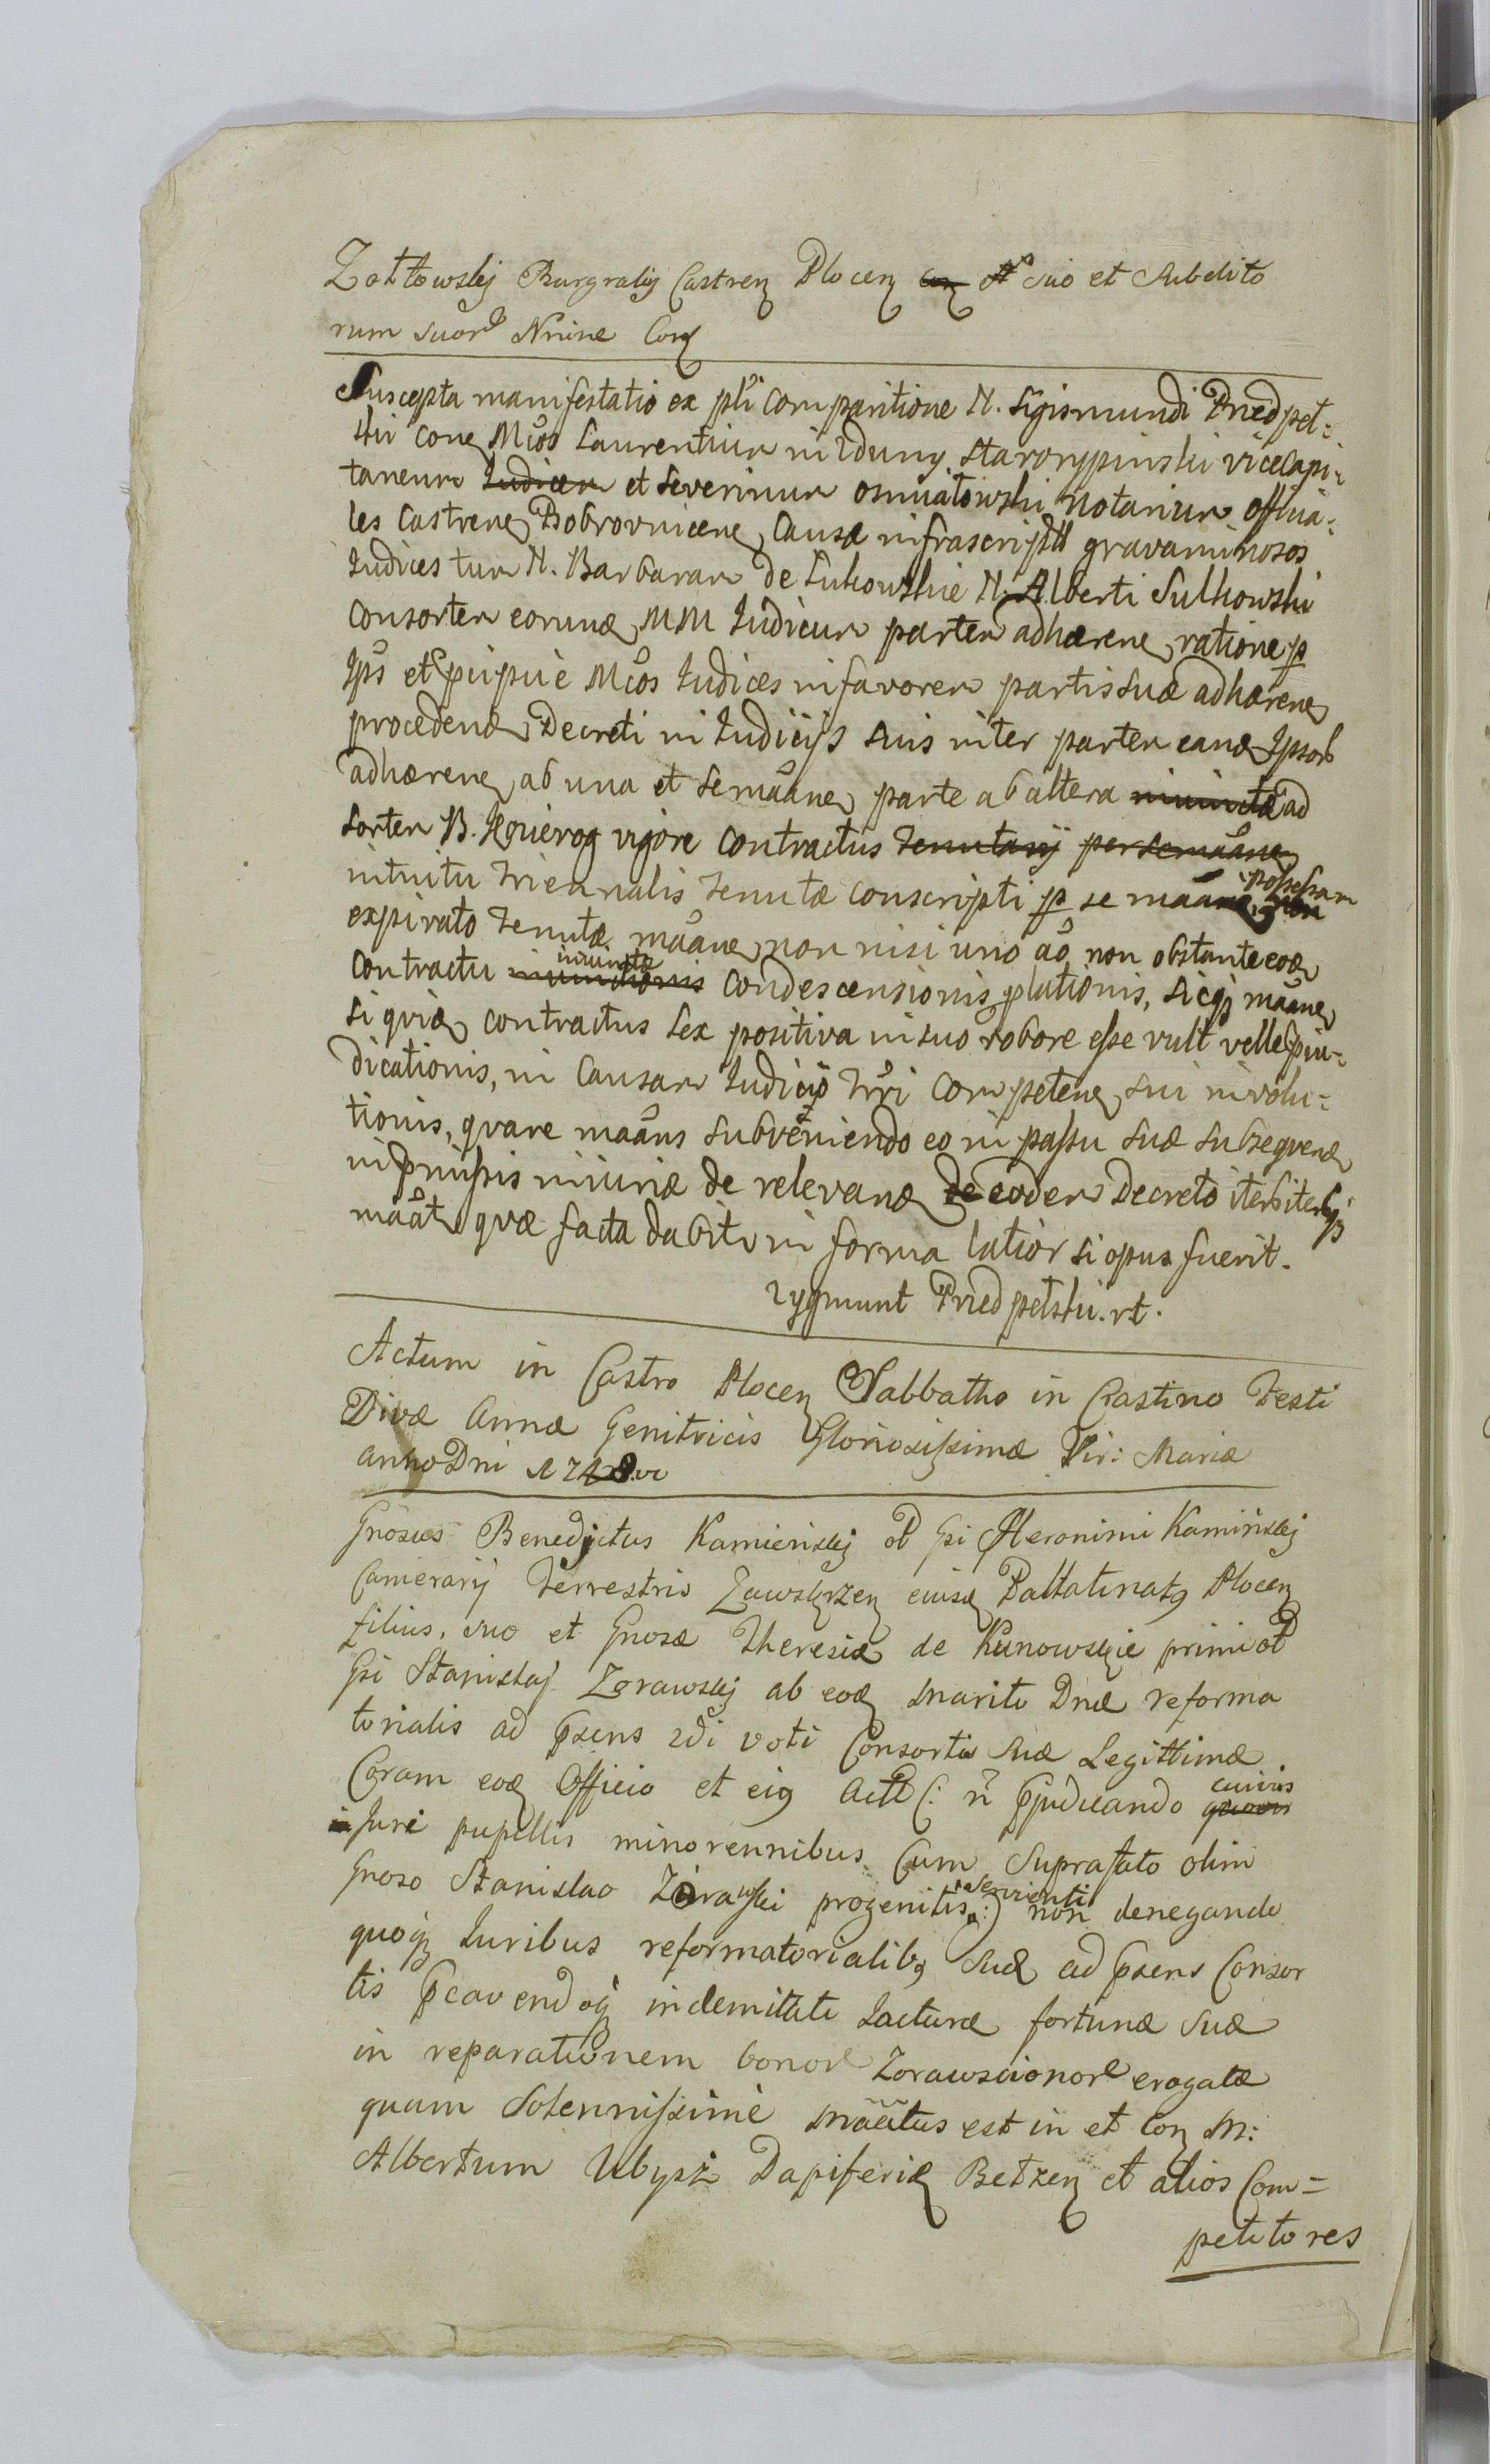 Zołtowskij Burgrabij Castren Plocen suo et Subdito
rum suor Nnine Con
Suscepta manifestatio ex pli Comparitione N. Sigismundi Przedpeł=
ski Cone Mcos Laurentium in Zduny Starorypinski ViceCapi=
taneum Judicem et Severinum Osmiałowski Notarium Officia=
les Castrene Bobrovnicene Causæ infrascriptæ gravaminosos
Judices tum N. Barbaram de Sukowskie N. Alberti Sulkowski
Consortem eorune MM Judicum partem adhærene ratione p
Ips et Mcos Judices in favorem partis suæ adhærene
procedene Decreti in Judicijs suis inter partem eane Ipsor
adhærene ab una et se mâane parte ab altera iniunctæ ad
sortem B. vigore Contractus Tenutarij per se mâane
intuitu triennalis Tenutæ conscripti p se mâane possessam
expirato Tenutæ mâane non nisi uno ao non obstante eoe
Contractu iniunctionis iniunctæ Condescensionis plationis, sicq mâane
siquie contractus Lex positiva in suo robore esse vult velle
dicationis, in Causam Judicijs Trri Competene sui involu=
tionis, qvare mâans subveniendo eo in passu suæ subseqvene
in pmissis iniuriæ de relevane de eodem Decreto iterbiterq
mâat qvæ facta dabitr in forma latior si opus fuerit.
Zygmunt Przedpełski. rt.
Actum in Castro Plocen Sabbatho in Crastino Festi
Divæ Annæ Genitricis Gloriosissimæ Vir: Mariæ
Anno Dni 1748vo
Gnosus Benedictus Kamieńskij ol Gsi Hieronimi Kamińskij
Camerarij Terrestris Zawskrzen eiusd Pallatinatq Plocen
filius, suo et Gnosæ Theresiæ de Kunowskie primi ol
Gsi Stanisłaj Zorawskij ab eod Marito Dnæ reforma
torialis ad psens 2di voti Consortis suæ Legittimæ
Coram eod Officio et eiq Actt (: n pjudicando quovis cuivis
in Juri pupellis minorennibus Cum Supra fato olim
Gnoso Stanislao Zorawski progenitis servienti :) non denegando
quoq Juribus reformatorialibq suæ ad psens Consor
tis pcavendoq indemitati Jacturæ fortunæ suæ
in reparationem bonor Zorawscionor erogatæ
quam Solennissimè mâatus est in et Con M:
Albertum Ubysz Dapiferid Betzen et alios Com=
petitores